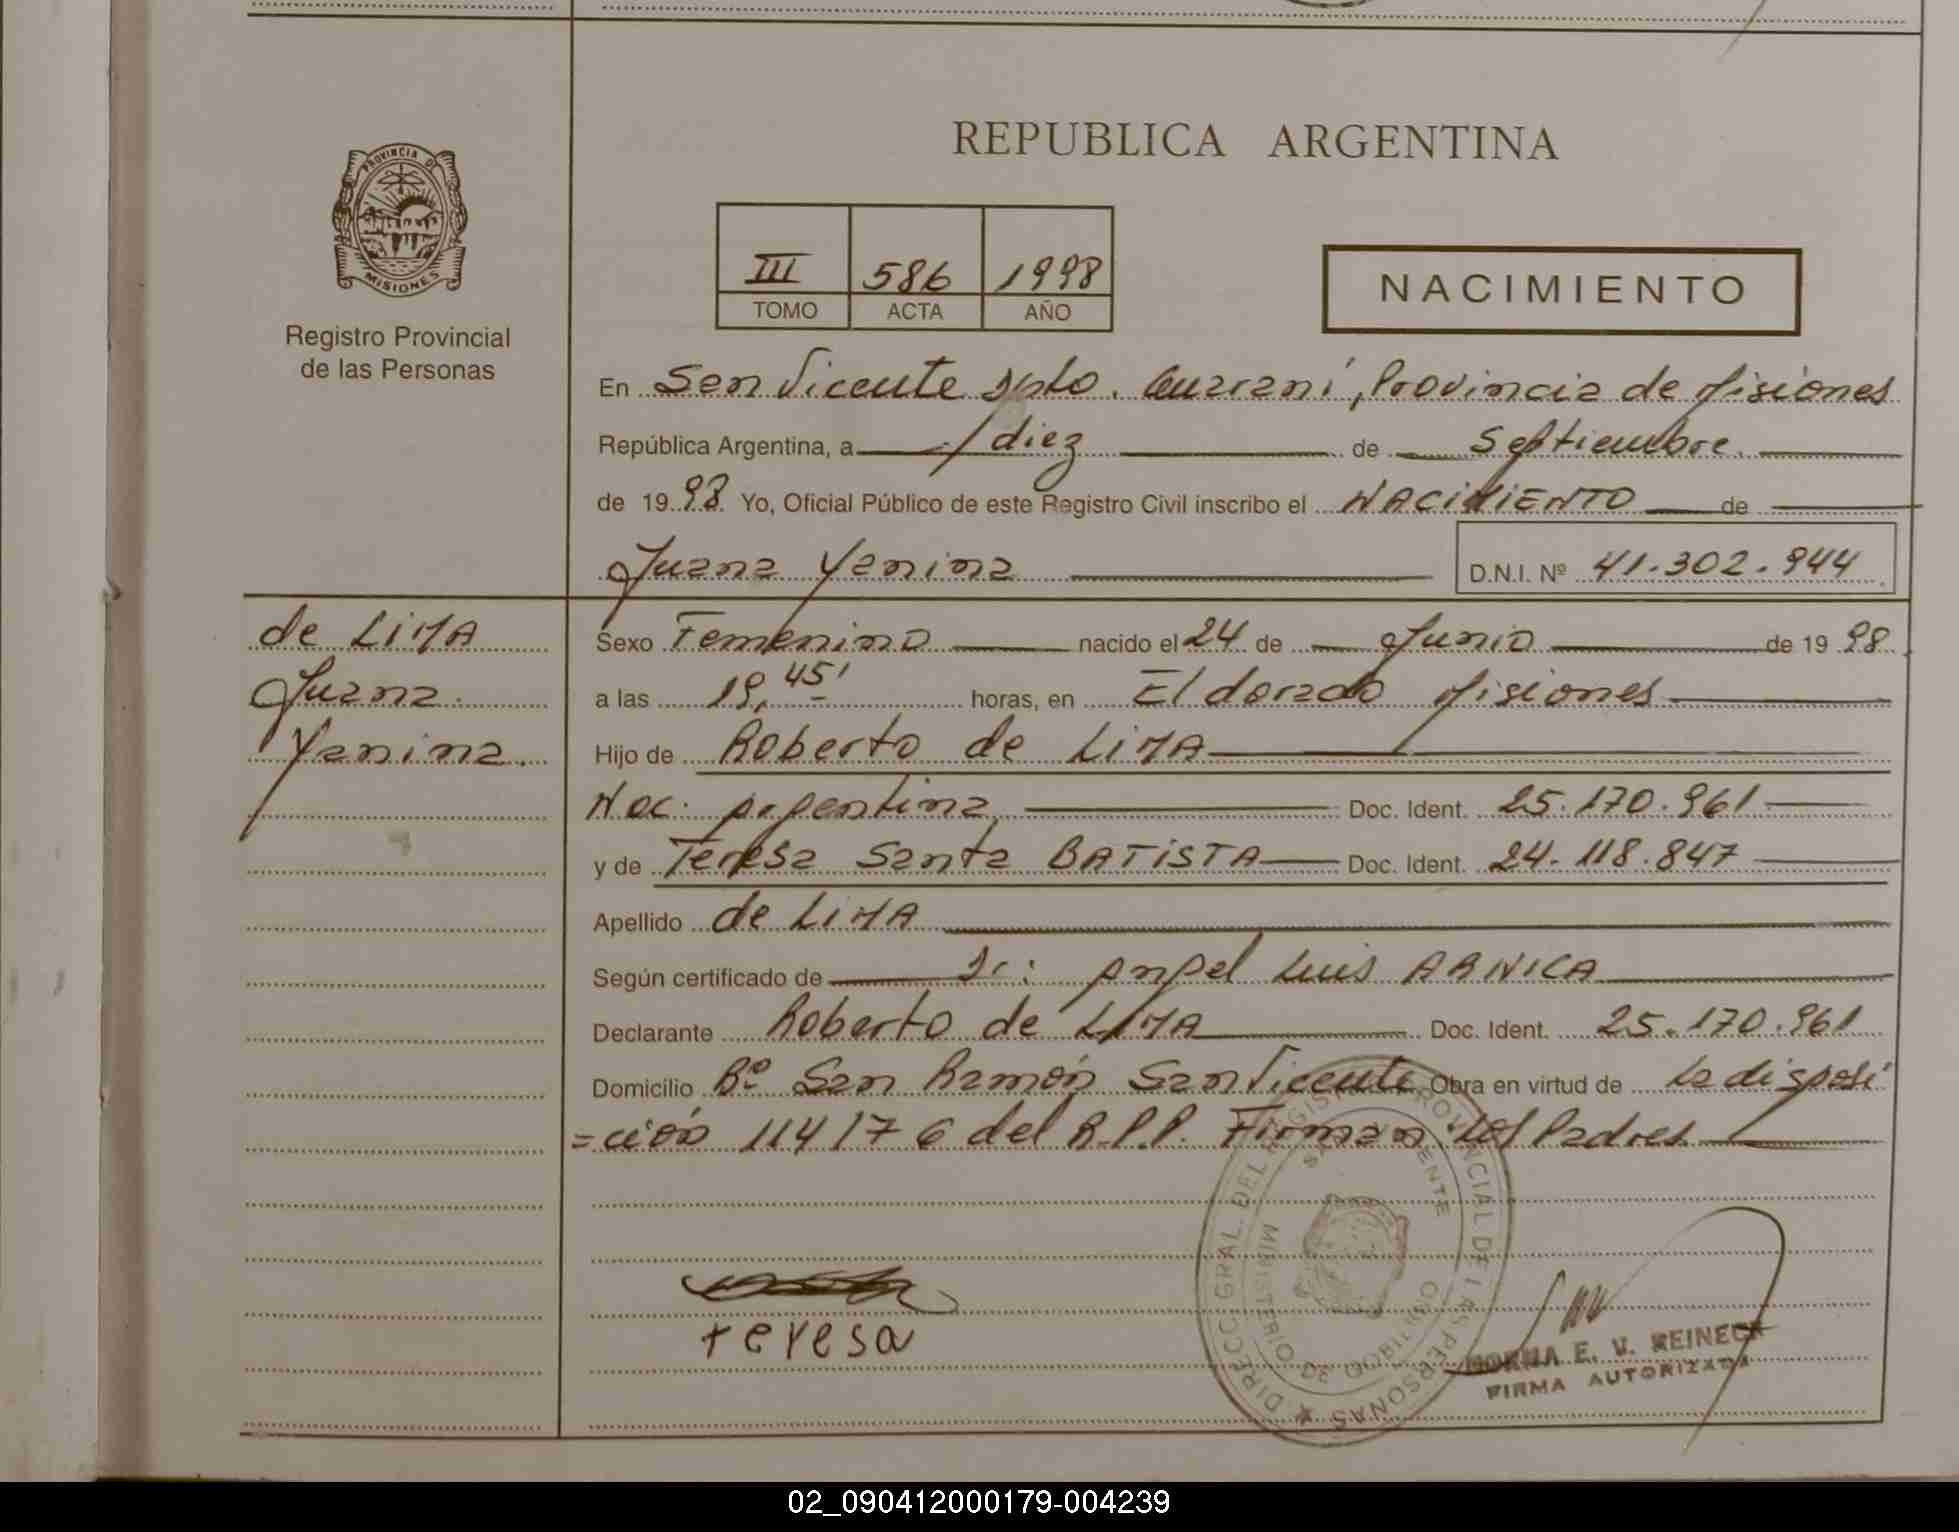 REPUBLICA ARGENTINA
PROVINCIA DE
MISIONES
Registro Provincial
de las Personas
III 586 1998
TOMO ACTA AÑO
NACIMIENTO
En San Vicente Dpto. Guaraní, Provincia de Misiones
República Argentina, a diez de Septiembre
de 1998 Yo, Oficial Público de este Registro Civil inscribo el NACIMIENTO de
Juana Yanina D.N.I. Nº 41.302.944
de LIMA
Juana
Yanina.
Sexo Femenino nacido el 24 de Junio de 1998
a las 19,45' horas, en Eldorado Misiones
Hijo de Roberto de LIMA
Nac: Argentina Doc. Ident. 25.170.961
y de Teresa Santa BATISTA Doc. Ident. 24.118.847
Apellido de LIMA
Según certificado de Dr: Angel Luis ARNICA
Declarante Roberto de LIMA Doc. Ident. 25.170.961
Domicilio Bº San Ramón San Vicente Obra en virtud de la disposi
=ción 114/76 del R.P.P. Firman los Padres
teresa
DIRECC. GRAL. DEL REGISTRO PROVINCIAL DE LAS PERSONAS
MINISTERIO DE GOBIERNO
NORMA E. V. REINECK
FIRMA AUTORIZADA
02_090412000179-004239